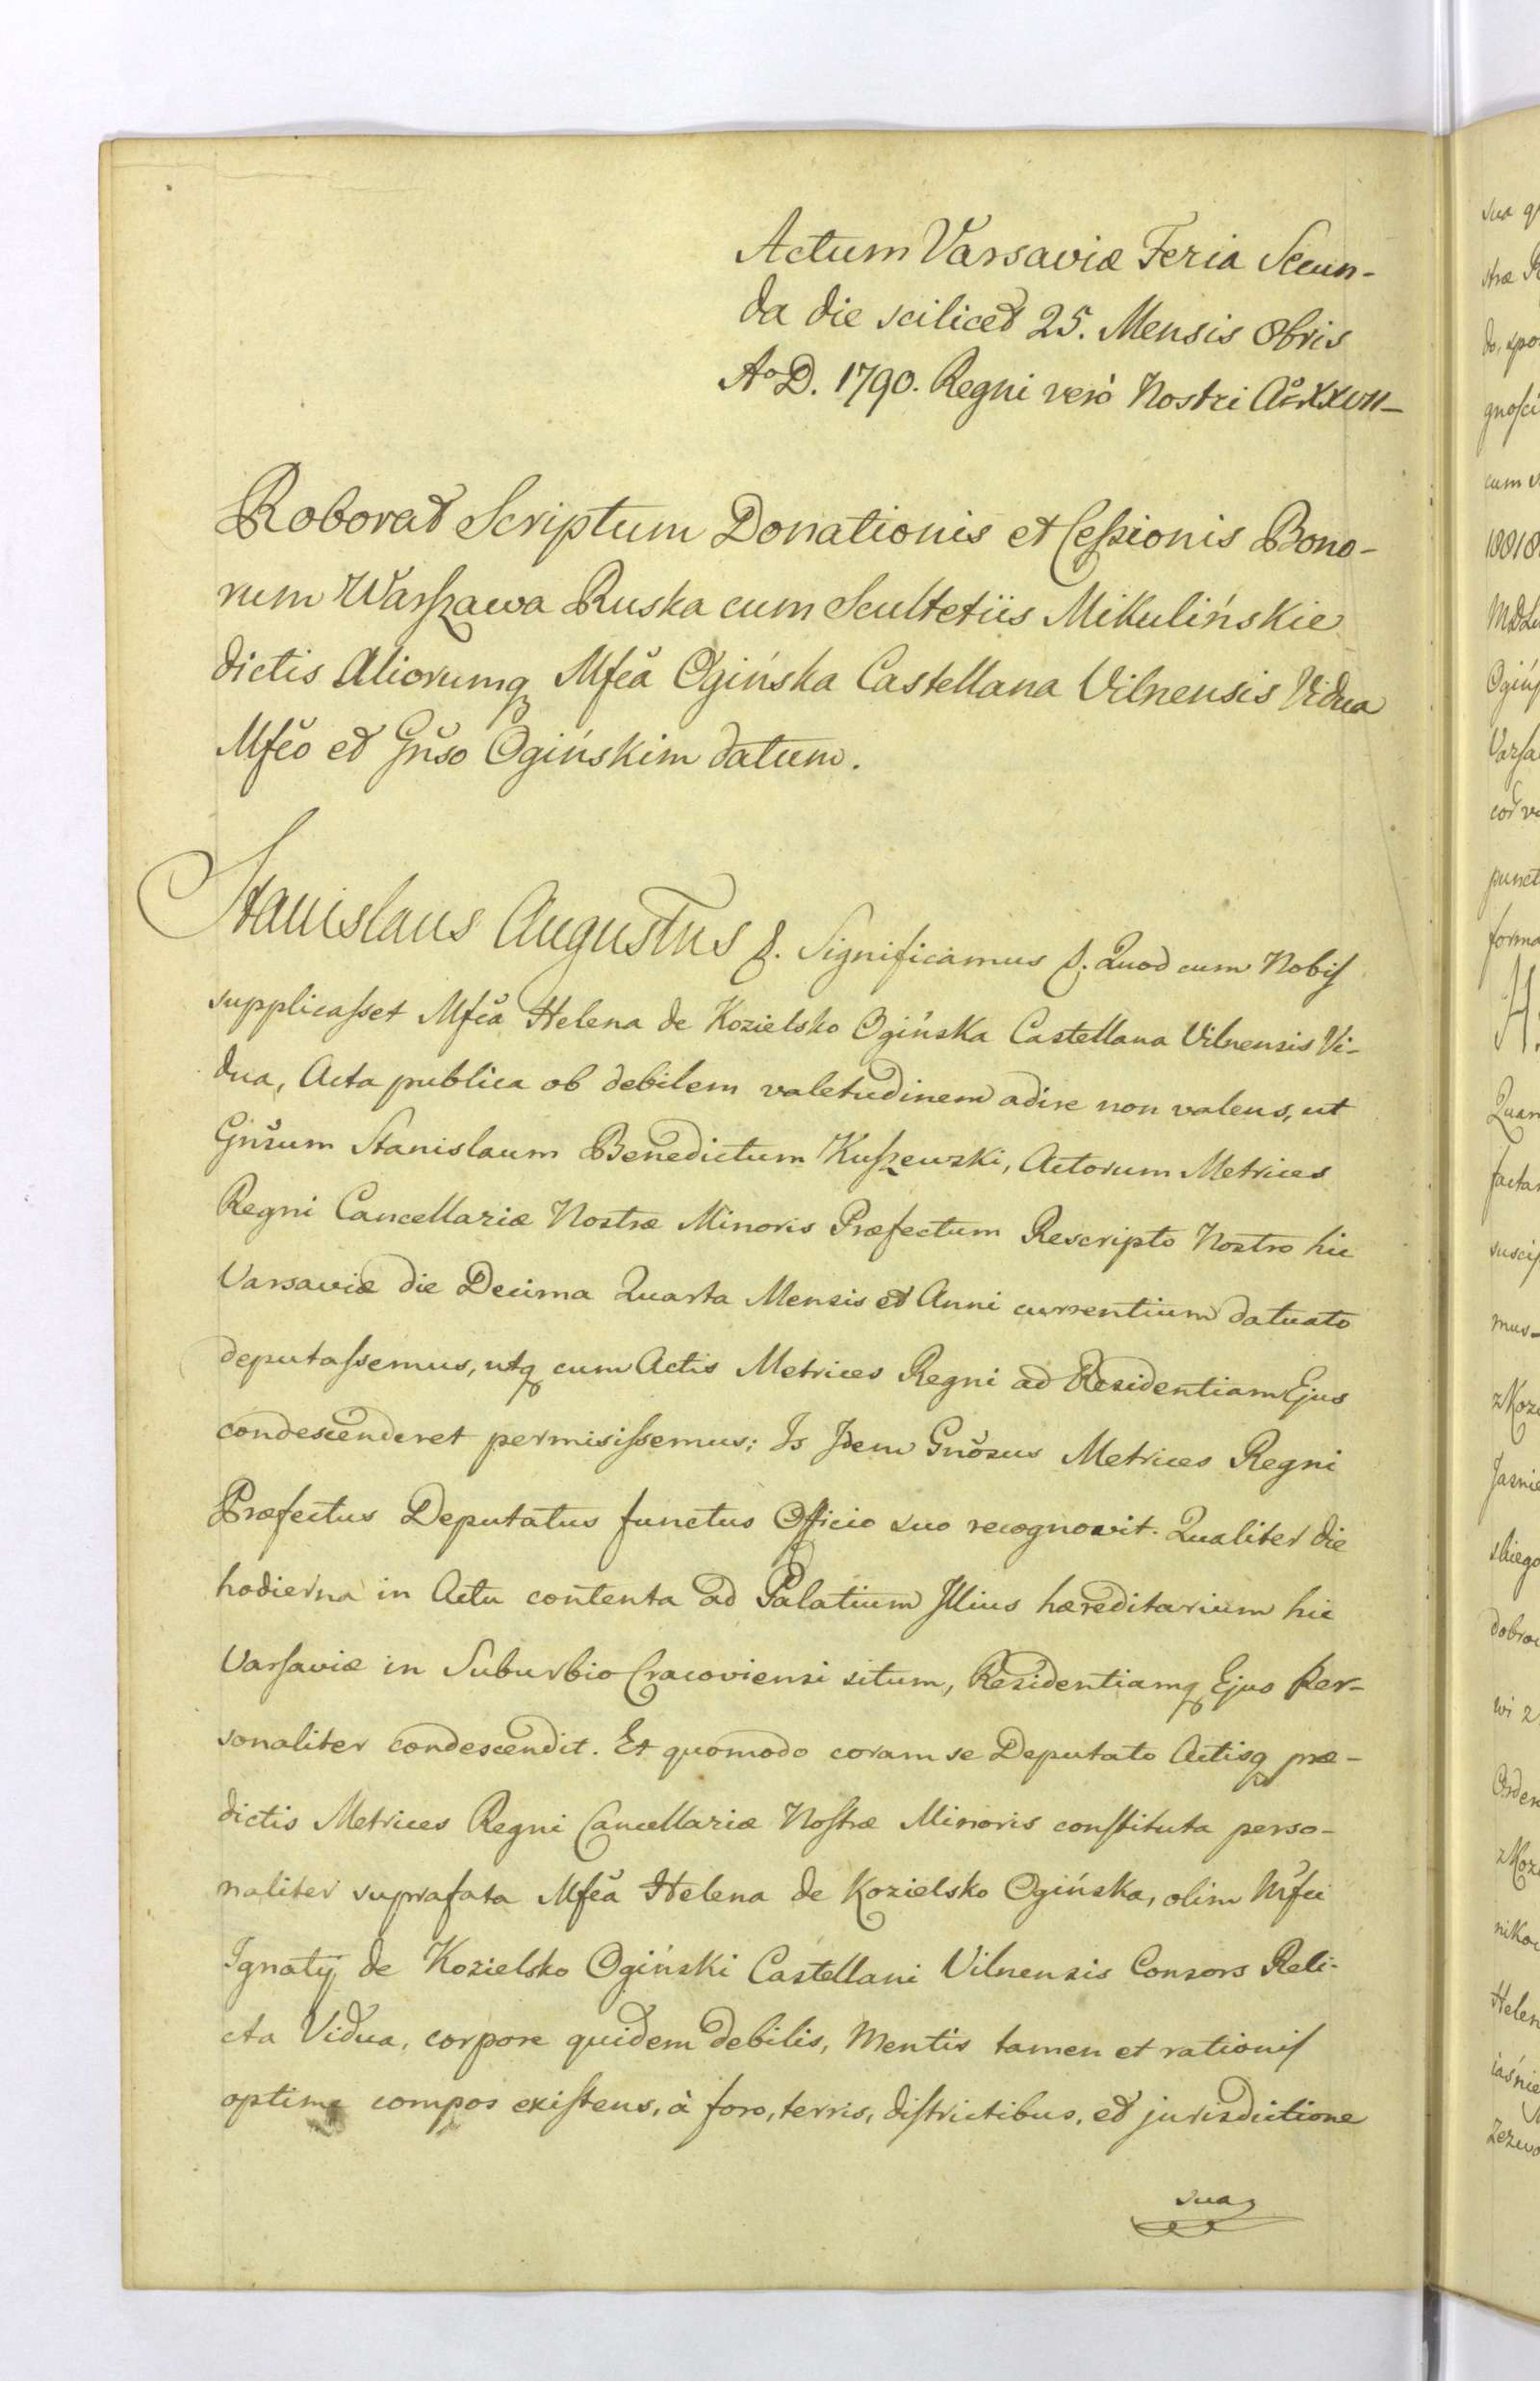 Actum Varsaviæ Feria Secun-
da die scilicet 25. Mensis 8bris
Aº D. 1790. Regni verò Nostri Aº XXVII-
Roborat Scriptum Donationis et Ceſsionis Bono-
rum Warſzawa Ruska cum Scultetiis Mikulińskie
dictis Aliorumq Mfca Ogińska Castellana Vilnensis Vidua
Mfco et Gnso Ogińskim datum.
Stanislaus Augustus &. Significamus &. Quod cum Nobiſ
supplicaſset Mfca Helena de Kozielsko Ogińska Castellana Vilnensis Vi-
dua, Acta publica ob debilem valetudinem adire non valens, ut
Gnsum Stanislaum Benedictum Kuſzewski, Actorum Metrices
Regni Cancellariæ Nostræ Minoris Præfectum Rescripto Nostro hic
Varsaviæ die Decima Quarta Mensis et Anni currentium datuato
deputaſsemus, utq cum Actis Metrices Regni ad Residentiam Ejus
condescenderet permisiſsemus; Is Idem Gnosus Metrices Regni
Præfectus Deputatus functus Officio suo recognovit. Qualiter die
hodierna in Actu contenta ad Palatium Illius hæreditarium hic
Varſaviæ in Suburbio Cracoviensi situm, Residentiamq Ejus Per-
sonaliter condescendit. Et quomodo coram se Deputato Actisq præ-
dictis Metrices Regni Cancellariæ Noſtræ Minoris conſtituta perso-
naliter suprafata Mfca Helena de Kozielsko Ogińska, olim Mfci
Ignatij de Kozielsko Ogiński Castellani Vilnensis Consors Reli-
cta Vidua, corpore quidem debilis, Mentis tamen et rationiſ
optime compos exiſtens, à foro, terris, diſtrictibus, et jurisdictione
sua